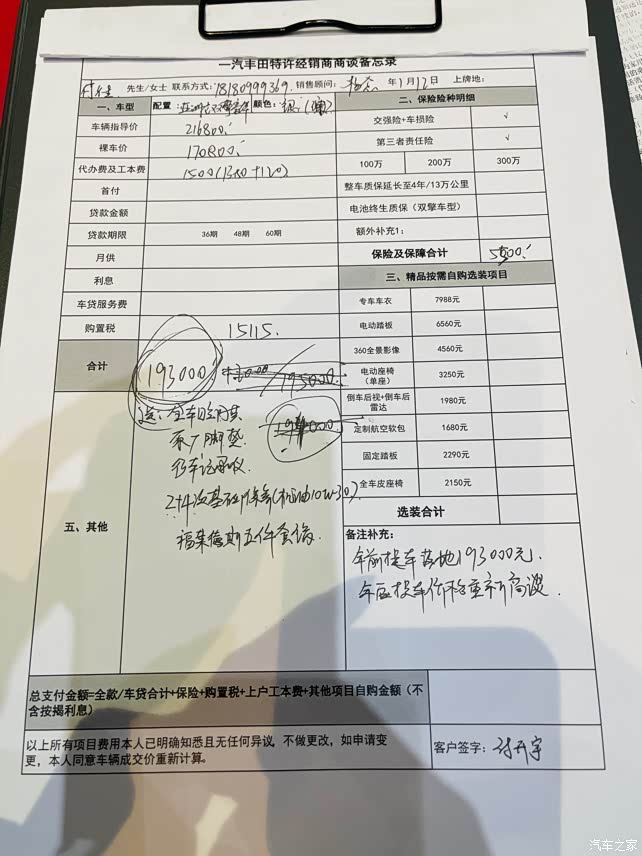 一汽丰田特许经销商商谈备忘录
先生/女士 联系方式：18180999369. 销售顾问： 年1月12日 上牌地：
一、车型 配置： 颜色：
车辆指导价 216800.
裸车价 170800.
代办费及工本费 1500(1380+120)
首付
贷款金额
贷款期限 36期 48期 60期
月供
利息
车贷服务费
购置税 15115.
合计 193000 195000.
五、其他
送：全车
原厂脚垫
行车记录仪
2+4次基础保养(机油10W-30)
福莱
二、保险险种明细
交强险+车损险 √
第三者责任险 √
100万 200万 300万
整车质保延长至4年/13万公里
电池终生质保（双擎车型）
额外补充1：
保险及保障合计
三、精品按需自购选装项目
专车车衣 7988元
电动踏板 6560元
360全景影像 4560元
电动座椅（单座） 3250元
倒车后视+倒车后雷达 1980元
定制航空软包 1680元
固定踏板 2290元
全车皮座椅 2150元
选装合计
备注补充：
年前提车落地193000元.
年后提车价格重新商谈.
总支付金额=全款/车贷合计+保险+购置税+上户工本费+其他项目自购金额（不
含按揭利息）
以上所有项目费用本人已明确知悉且无任何异议，不做更改，如申请变
更，本人同意车辆成交价重新计算。
客户签字：
汽车之家